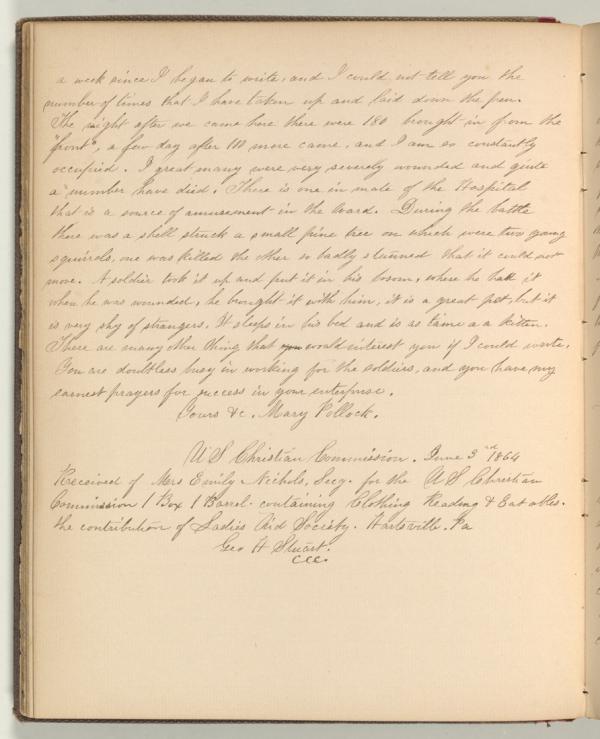 a week since I began to write, and I could not tell you the
number of times that I have taken up and laid down the pen.
The night after we came here there were 180 brought in from the
"front", a few day after 110 more came, and I am so constantly
occupied. I great many were very severely wounded and quite
a number have died. There is one in mate of the Hospital
that is a source of amusement in the Ward. During the battle
there was a shell struck a small pine tree on which were two young
squirrels, one was killed the other so badly stunned that it could not
move. A soldier took it up and put it in his bosom, where he had it
when he was wounded, he bought it with him, it is a great pet, but it
is very shy of strangers. It sleeps in his bed and is as tame a a kitten.
There are many other thing that you would interest you if I could write.
You are doubtless busy in working for the soldiers, and you have my
earnest prayers for success in your enterprise.
Yours &c. Mary Pollock.
U S Christian Commission. June 3rd 1864
Received of Mrs Emily Nichols, Secy. for the U S Christian
Commission 1 Box 1 Barrel. containing Clothing Reading & Eatables.
the contribution of Ladies Aid Society. Hartsville. Pa
Geo H Stuart.